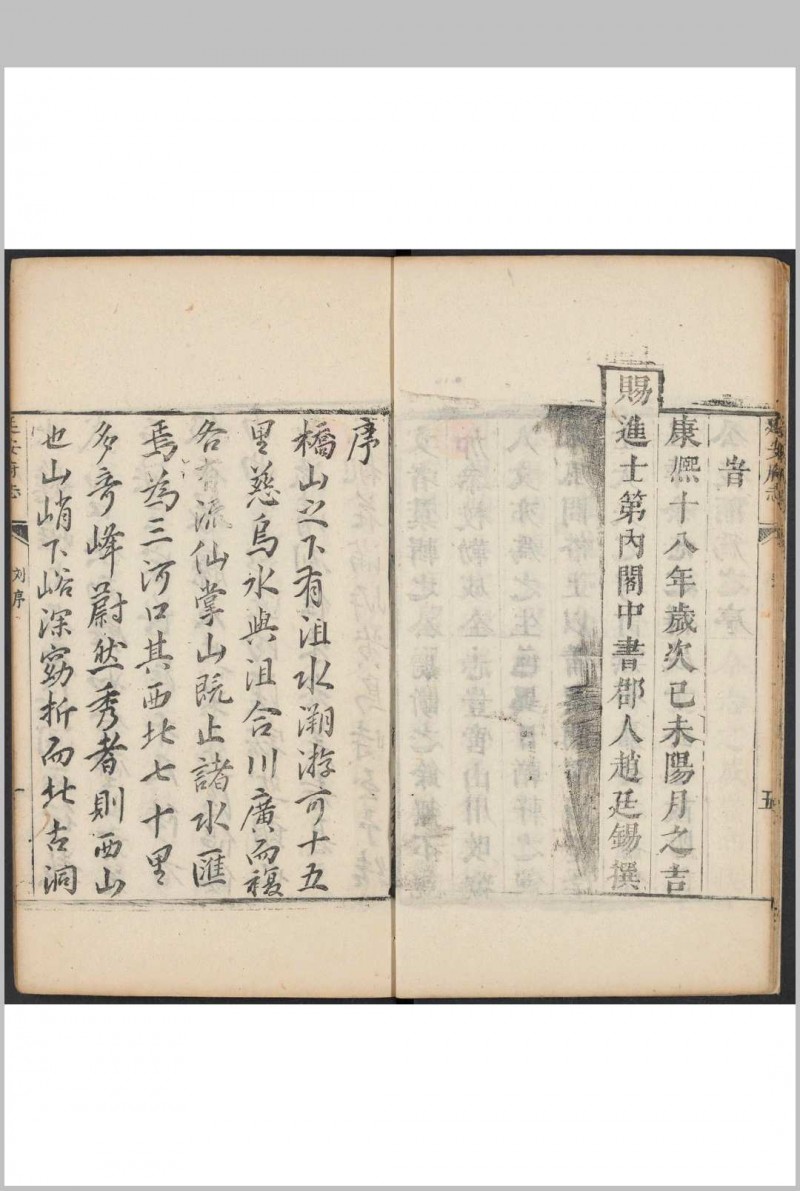 旹
康熙十八年歲次己未陽月之吉
賜進士第內閣中書郡人趙廷錫撰
五
序
橋山之下有沮水溯游可十五
里慈烏水與沮合川廣而複
各有流仙掌山既止諸水匯
焉為三河口其西北七十里
多奇峰蔚然秀者則西山
也山峭下峪深窈折而北古洞
延安府志
刘序
一